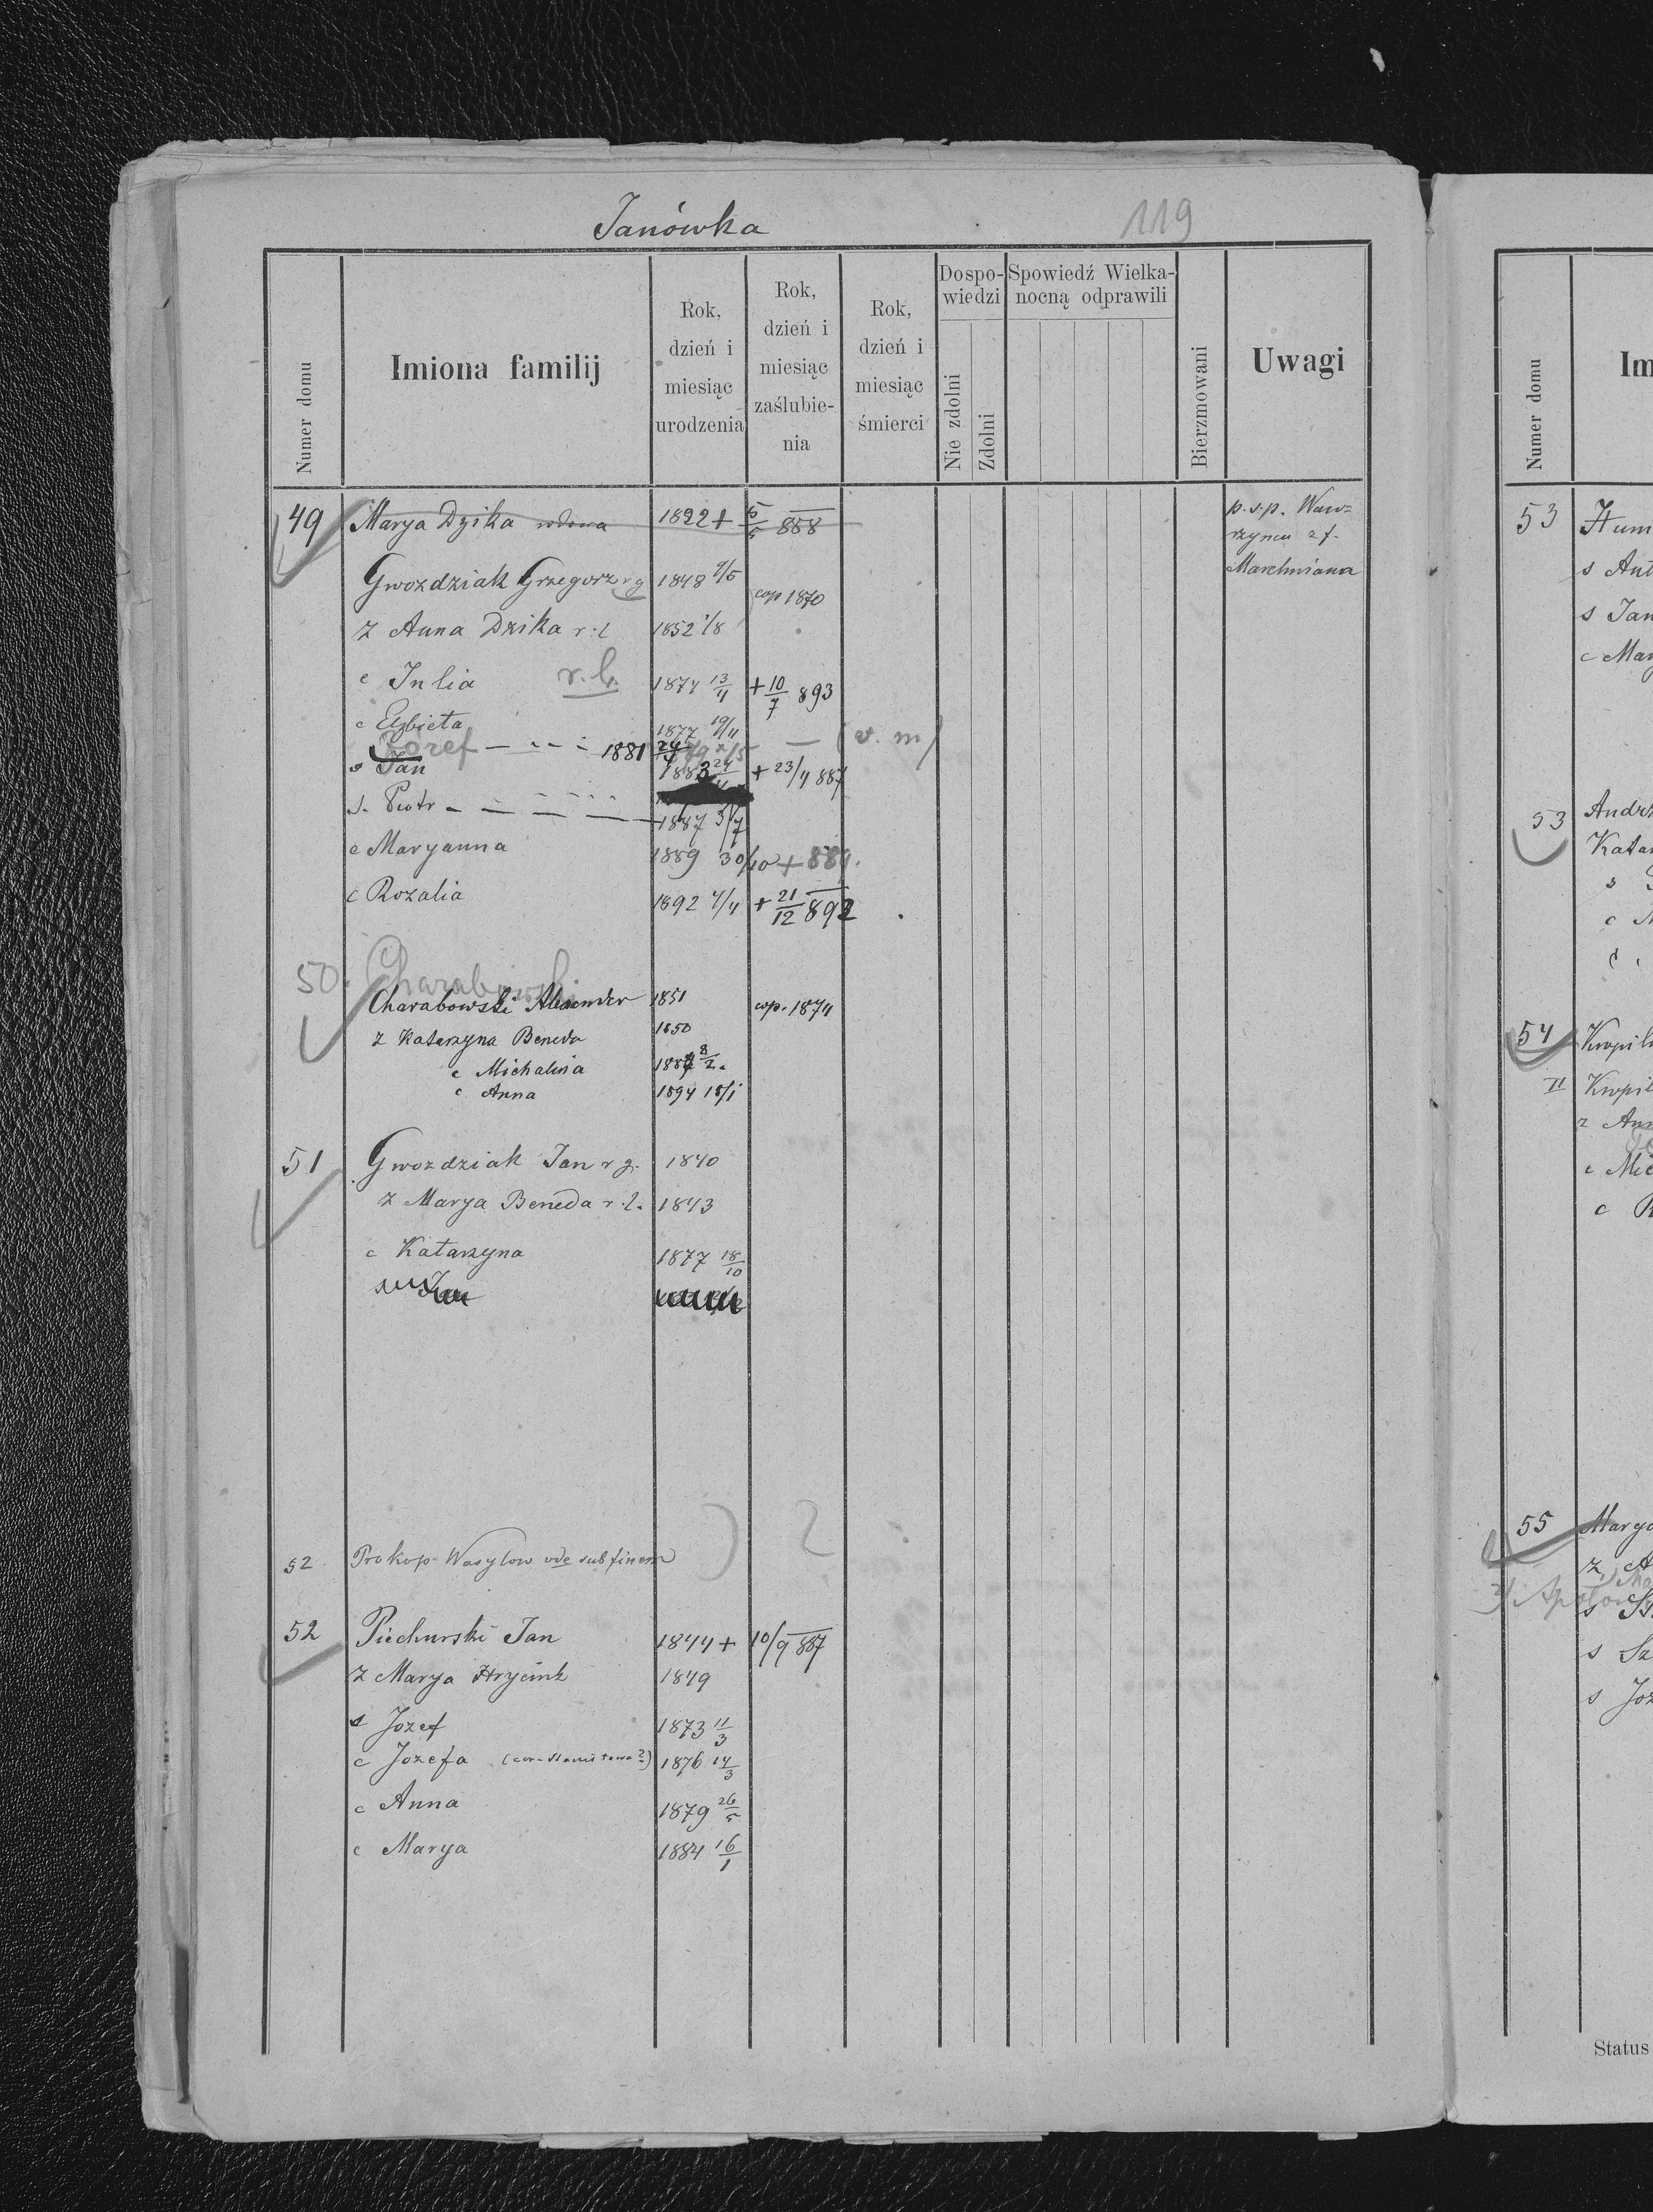 Janówka 119
Numer domu
Imiona familij
Rok, dzień i miesiąc urodzenia
Rok, dzień i miesiąc zaślubienia
Rok, dzień i miesiąc śmierci
Dospowiedzi
Nie zdolni
Zdolni
Spowiedź Wielkanocną odprawili
Bierzmowani
Uwagi
49 Marya Dzika wdowa 1822 + 5/5 888 p.s.p. Waw=
rzyncu z f.
Gwozdziak Grzegorz r g 1848 cop 1870
z Anna Dzika r. l 1852 1/8
c Julia r. l. 1874 13/4 + 10/7 893
c Elzbieta 1877 19/11
Jozef 1881 — (v. m)
s Jan 1883 24/4 + 23/4 887
s. Piotr 1887 3/7
c Maryanna 1889 30/10 + 889.
c Rozalia 1892 4/4 + 21/12 892
50. Charabowski
Charabowski Alexander 1851 cop. 1874
z Katarzyna Beneda 1850
c Michalina 8/2.
c Anna 1894 18/1
51 Gwozdziak Jan r g. 1840
z Marya Beneda r. l. 1843
c Katarzyna 1877 18/10
52 Prokop Wasylow vde sub finem
52 Piechurski Jan 1844 + 10/9 887
z Marya Hryciuk 1849
s Jozef 1873 11/3
c Jozefa 1876 14/3
c Anna 1879 26/5
c Marya 1884 16/1
Numer domu
Im
53
s Ant
s Jan
c Mar
53 Andrz
Katar
54
II
c Mic
55 Marya
s Sz
s Joz
Status